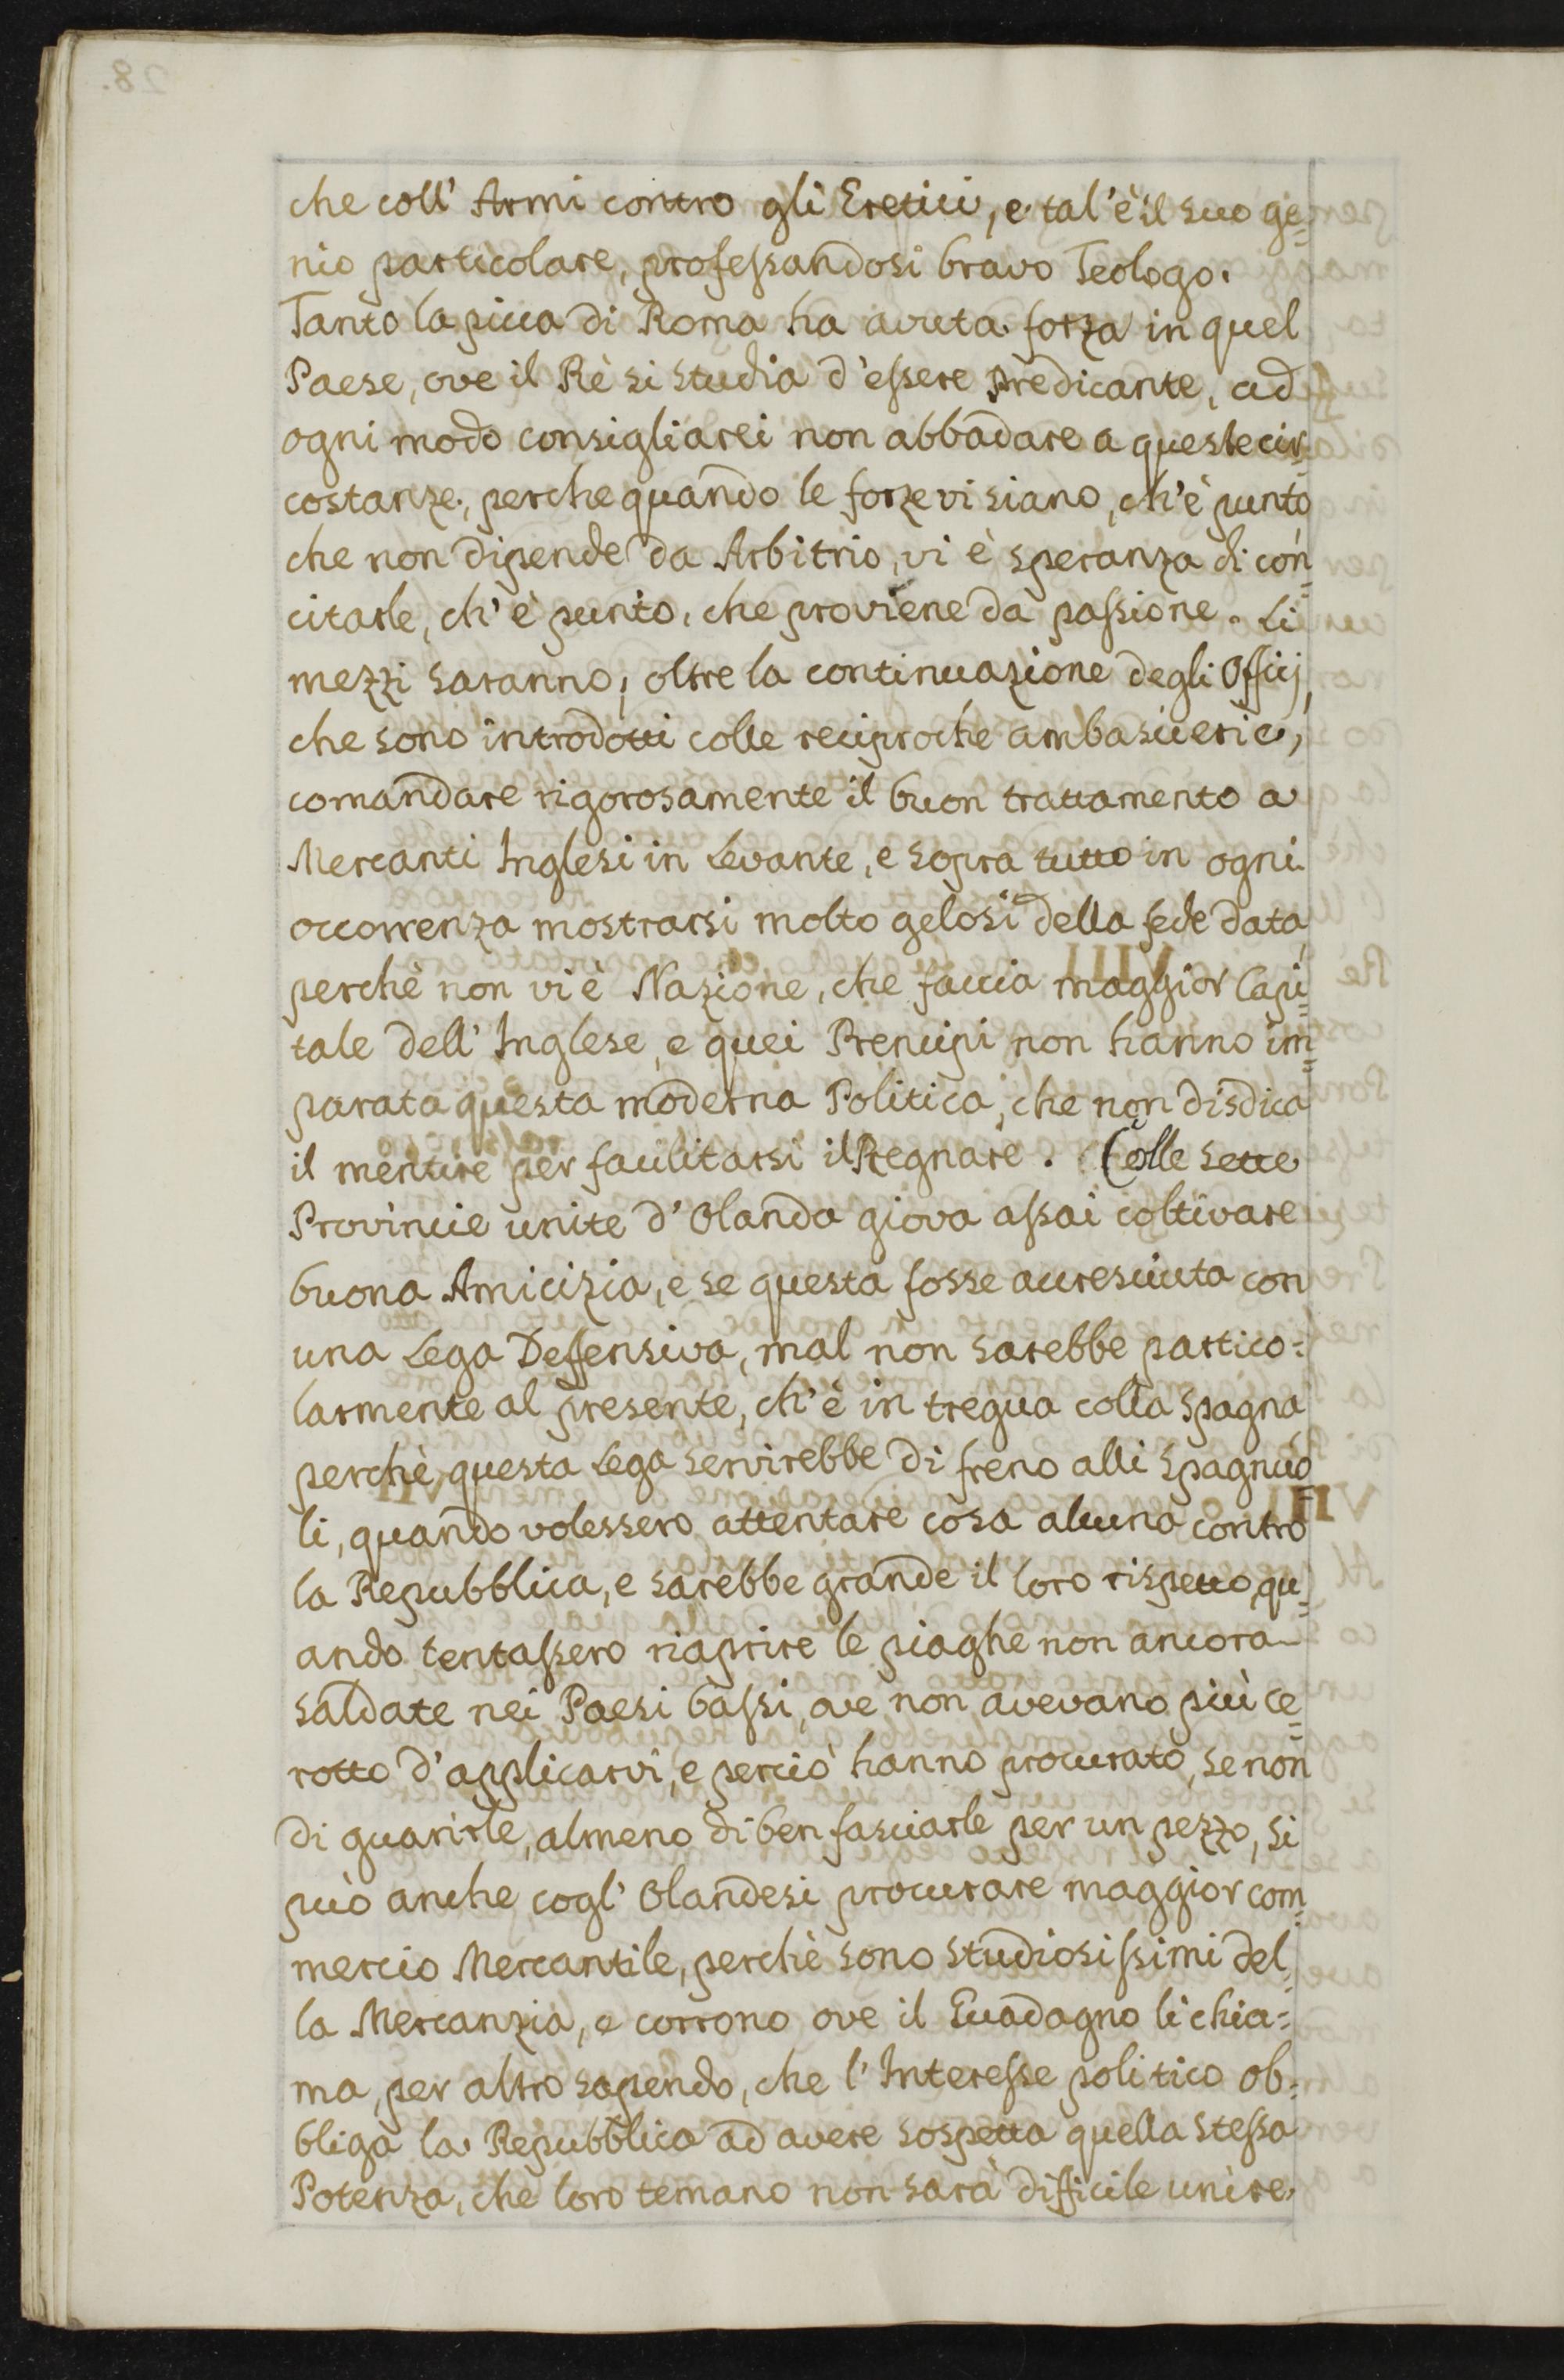 che coll' Armi contro gli Eretici, e tal' è il suo ge=
nio particolare, profeſsandosi bravo Teologo.
Tanto la picca di Roma ha avuta forza in quel
Paese, ove il Rè si studia d'eſsere Predicante, ad
ogni modo consigliarei non abbadare a queste cir=
costanze, perche quando le forze vi siano, ch'è punto
che non dipende da Arbitrio, vi è speranza di con=
citarle, ch' è punto, che proviene da paſsione. Li
mezzi saranno, oltre la continuazione degli Officj,
che sono introdotti colle reciproche ambascierie,
comandare rigorosamente il buon trattamento a
Mercanti Inglesi in Levante, e sopra tutto in ogni
occorrenza mostrarsi molto gelosi della fede data,
perchè non vi è Nazione, che faccia maggior Capi=
tale dell' Inglese, e quei Prencipi non hanno im=
parata questa moderna Politica, che non disdica
il mentire per facilitarsi il Regnare. Colle sette
Provincie unite d' Olanda giova aſsai coltivare
buona Amicizia, e se questa fosse accresciuta con
una Lega Deffensiva, mal non sarebbe partico=
larmente al presente, ch' è in tregua colla Spagna,
perchè questa Lega servirebbe di freno alli Spagnuo=
li, quando volessero attentare cosa alcuna contro
la Repubblica, e sarebbe grande il loro rispetto, qu=
ando tentaſsero riaprire le piaghe non ancora
saldate nei Paesi baſsi, ove non avevano più ce=
rotto d' applicarvi, e perciò hanno procurato, se non
di guarirle, almeno di ben fasciarle per un pezzo, si
può anche cogl' Olandesi procurare maggior com=
mercio Mercantile, perchè sono studiosiſsimi del=
la Mercanzia, e corrono ove il Guadagno li chia=
ma, per altro sapendo, che l' Intereſse politico ob=
bliga la Repubblica ad avere sospetta quella steſsa
Potenza, che loro temano non sarà difficile unire